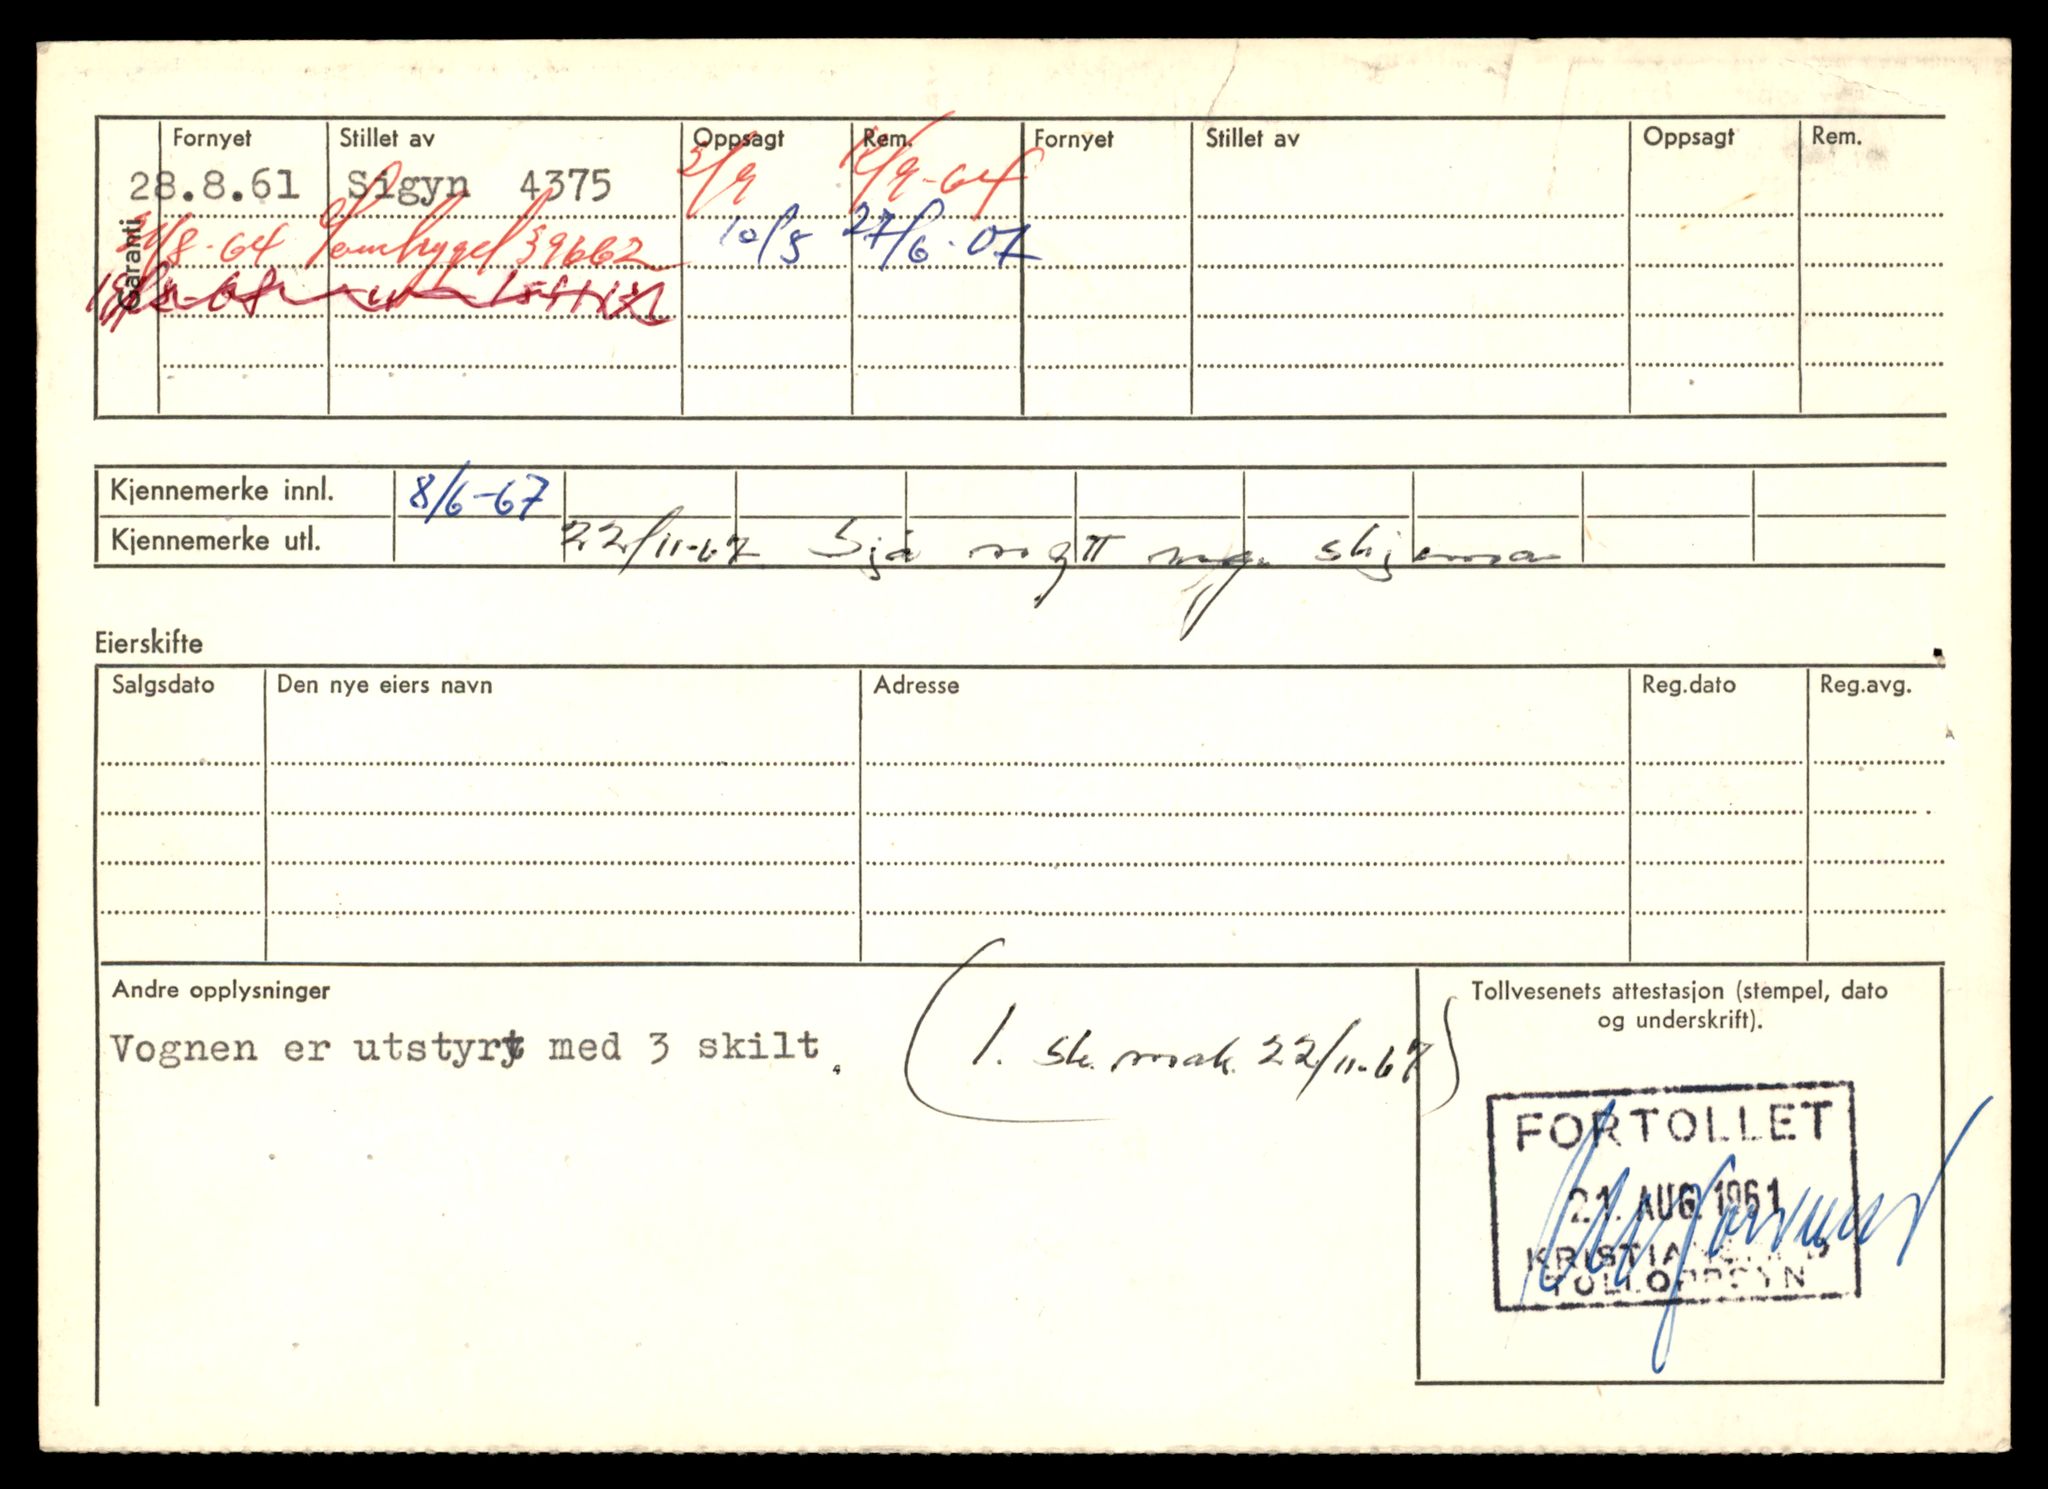 Garanti
Fornyet Stillet av Oppsagt Rem. Fornyet Stillet av Oppsagt Rem.
28.8.61 Sigyn 4375 3/9 12/9-64
31/8-64 Samtrygd 39662 10/5 27/6-67
Kjennemerke innl. 8/6-67
Kjennemerke utl. 22/11-67 Sjå nytt skjema
Eierskifte
Salgsdato Den nye eiers navn Adresse Reg.dato Reg.avg.
Andre opplysninger
Vognen er utstyrt med 3 skilt.
(1. sk. mak. 22/11-67)
Tollvesenets attestasjon (stempel, dato
og underskrift).
FORTOLLET
21. AUG. 1961
KRISTIANSUND
TOLLOPPSYN